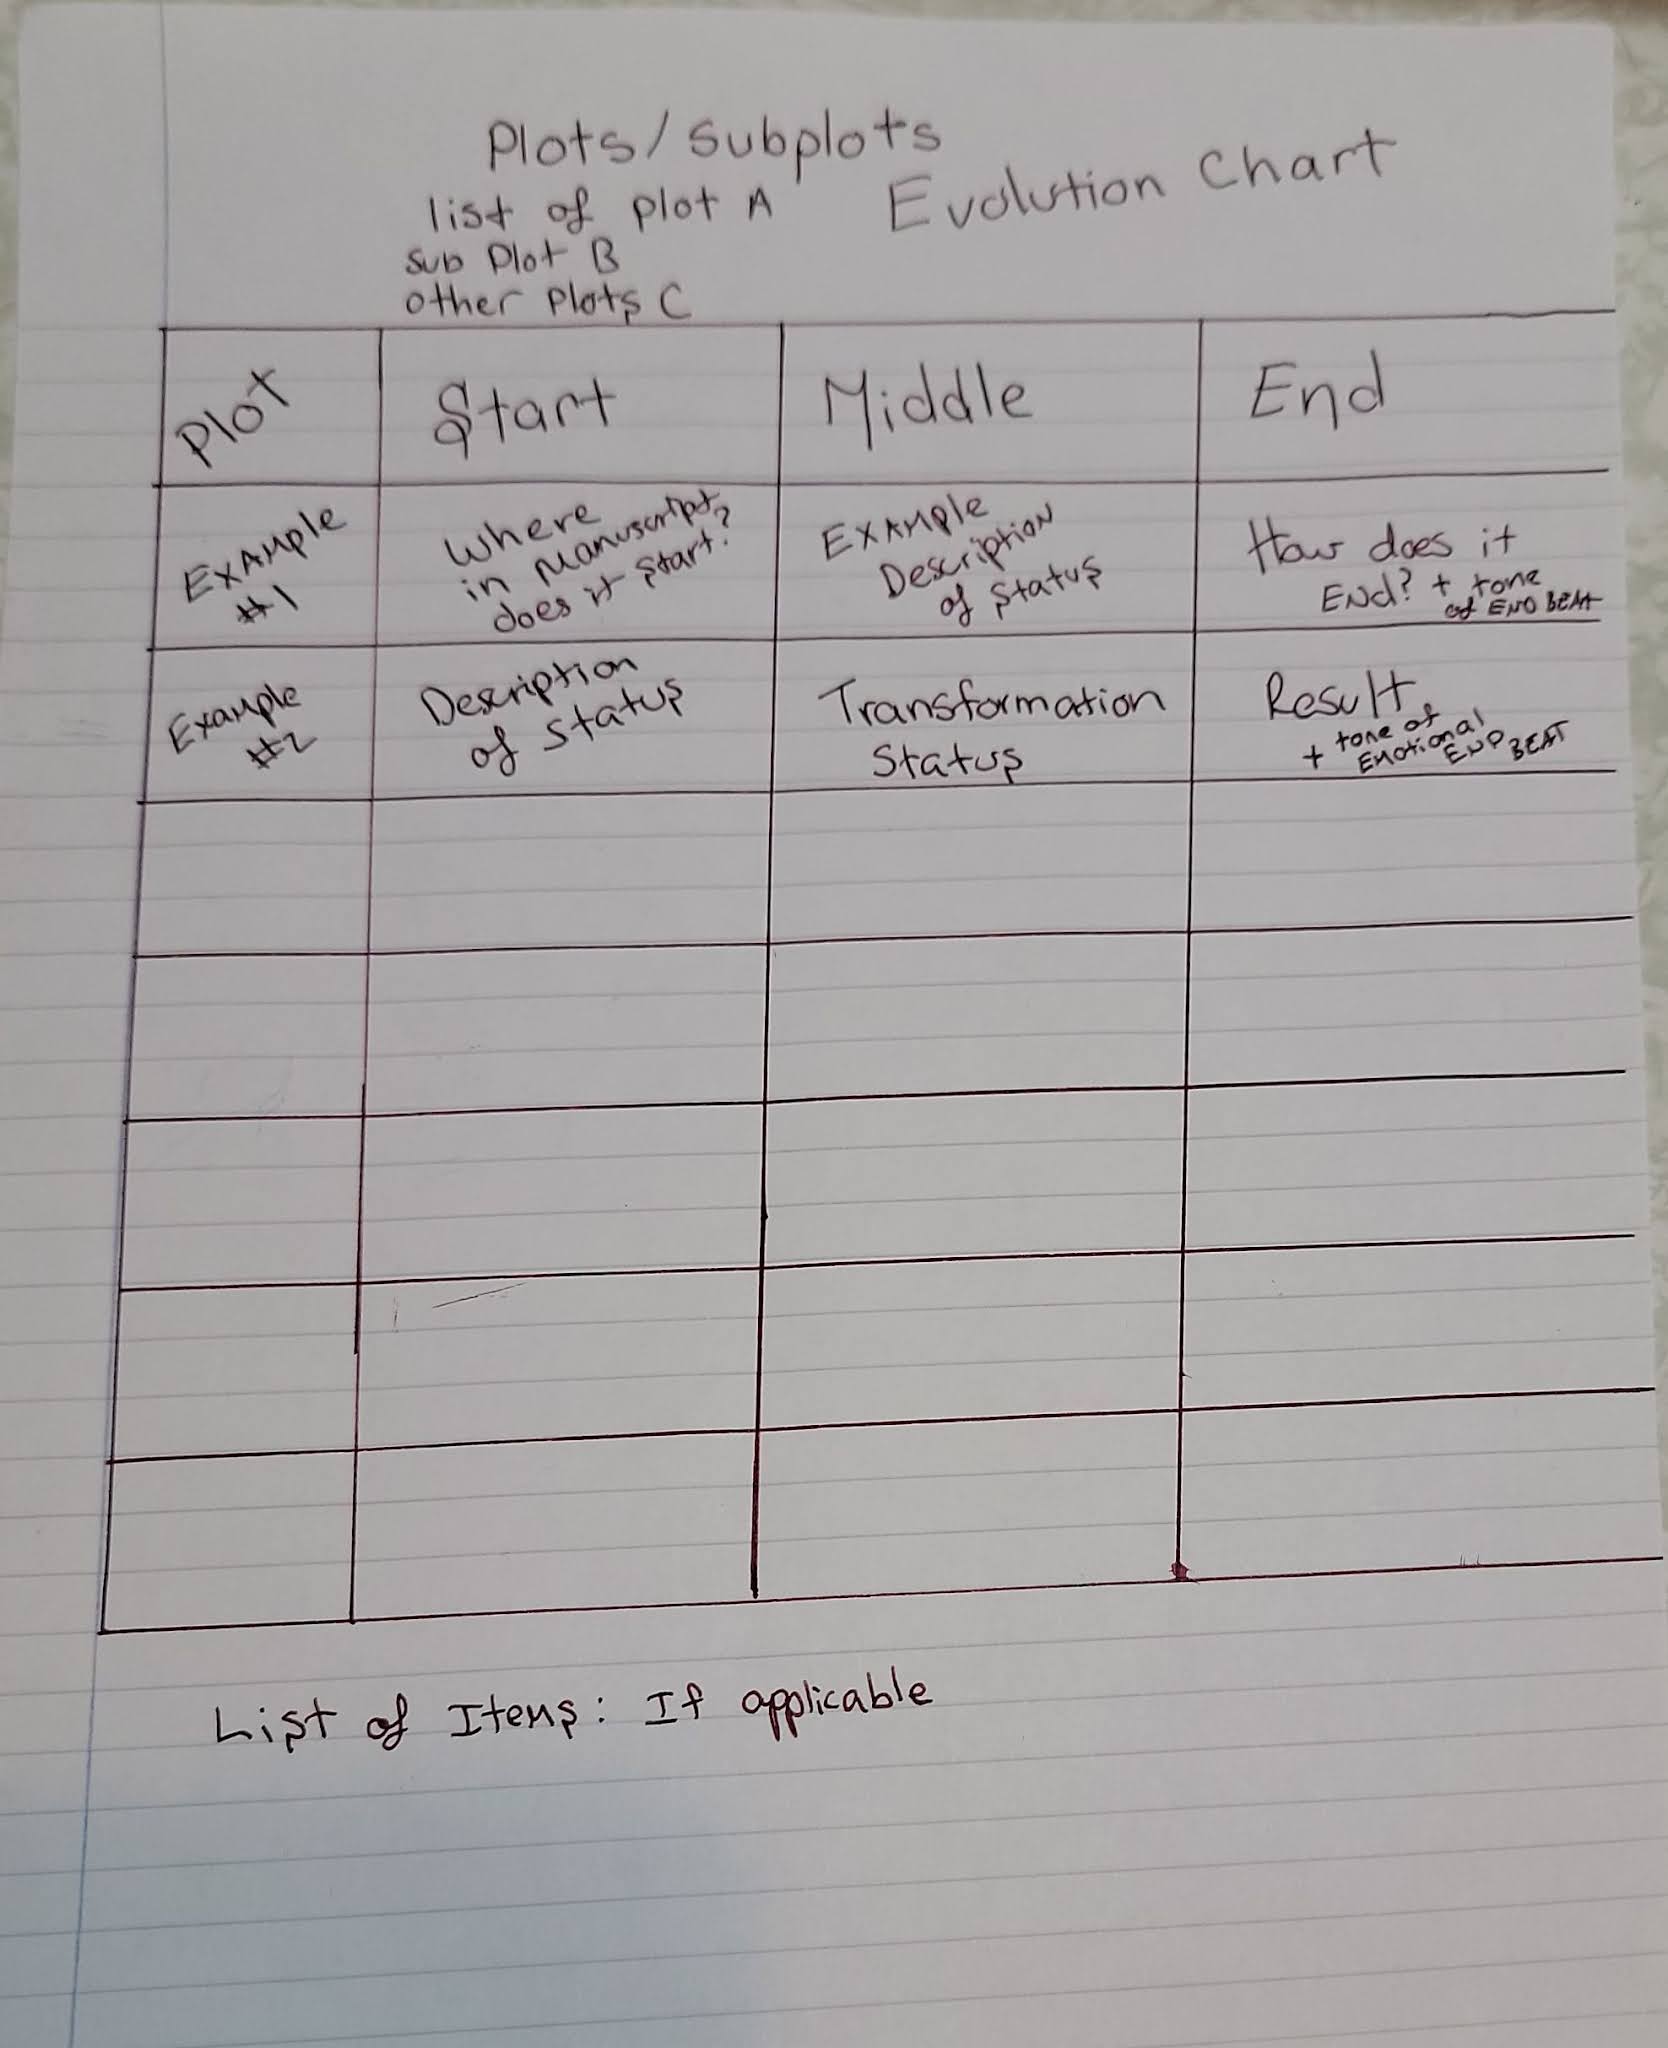 Plots/Subplots
Evolution Chart
list of plot A
Sub Plot B
other Plots C
Plot
Start
Middle
End
Example #1
Where
in Manuscript
does it start?
Example
Description
of Status
How does it
End? + tone
of END BEAT
Example
#2
Description
of Status
Transformation
Status
Result
+ tone of
Emotional
END BEAT
List of Items: If applicable